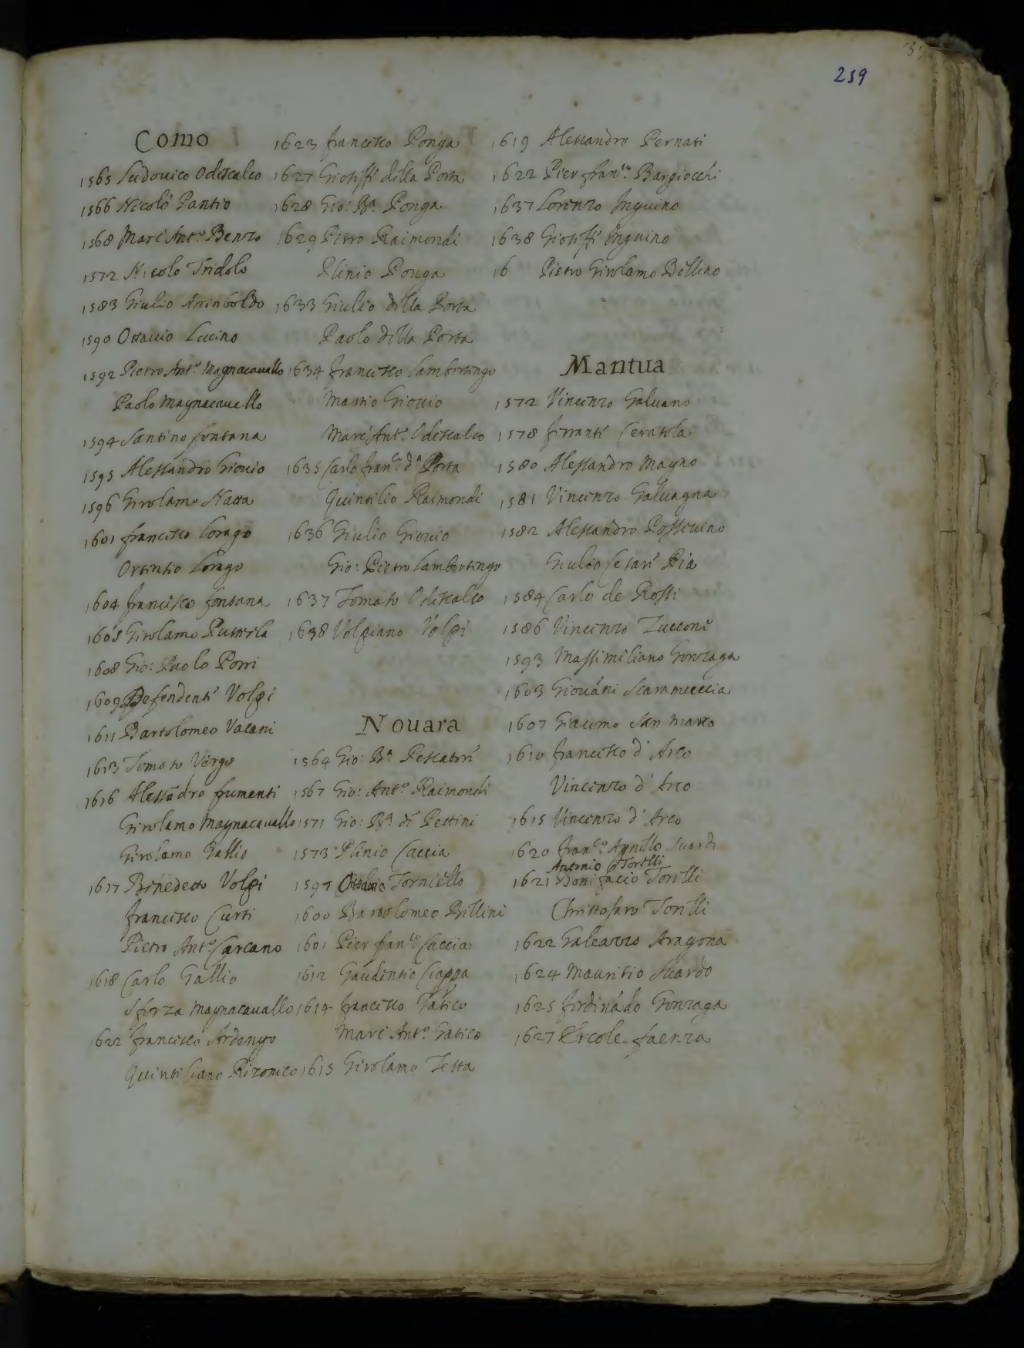 259
Como
1565 Ludouico Odescalco
1566 Nicolò Pantio
1568 Marc'Ant.º Benzo
1572 Nicolo Tridolo
1583 Giulio
1590 Ottauio Lucino
1592 Pietro Ant.º Magnacauallo
Paolo Magnacauallo
1594 Santino fontana
1595 Alessandro Giouio
1596 Girolamo Natta
1601 francesco Lorago
Ortensio Lorago
1604 francesco fontana
1605 Girolamo Pusterla
1608 Gio: Paolo Porri
1609 Defendente Volpi
1611 Bartolomeo Vacani
1613 Tomaso
1616 Alessādro fumenti
Girolamo Magnacauallo
Girolamo Gallio
1617 Benedetto Volpi
francesco Curti
Pietro Ant.º Carcano
1618 Carlo Gallio
Sforza Magnacauallo
1622 francesco
1623 francesco Ponga
1627 Gioseffe della Porta
1628 Gio: Ba. Ponga
1629 Pietro Raimondi
Plinio Ponga
1633 Giulio della Porta
Paolo della Porta
1634 francesco Lambertengo
Giouio
Marc'Ant.º Odescalco
1635 Carlo fran.co d.a Porta
Quintilio Raimondi
1636 Giulio Giouio
Gio: Pietro Lambertengo
1637 Tomaso Odescalco
1638 Volpiano Volpi
Nouara
1564 Gio: Ba. Pescatore
1567 Gio: Ant.º Raimondi
1571 Gio: Ba. de Pettini
1573 Plinio Caccia
1597 Ottauio Torniello
1600 Bartolomeo Bellini
1601 Pier fran.co Caccia
1612 Gaudentio
1614 francesco Gatico
Marc'Ant.º Gatico
1615 Girolamo Testa
1619 Alessandro Pernati
1622 Pier fran.co Bargiocchi
1637 Lorenzo Inguino
1638 Gioseffe Inguino
16 Pietro Girolamo Bellino
Mantua
1572 Vincenzo Galuano
1578 ferrante
1580 Alessandro Magno
1581 Vincenzo Galuagna
1582 Alessandro Posseuino
Giulio Cesare Pia
1584 Carlo de Rossi
1586 Vincenzo Zuccone
1593 Massimiliano Gonzaga
1603 Giouāni Scaramuccia
1607 Giacomo San Marco
1610 francesco d'Arco
Vincenzo d'Arco
1615 Vincenzo d'Arco
1620 fran.co Agnello Suardi
Antonio Torelli
1621 Bonifacio Torelli
Christoforo Torelli
1622 Galeazzo Aragona
1624 Mauritio Suardo
1625 ferdināndo Gonzaga
1627 Ercole faenza